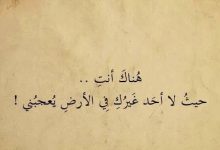 هُناكَ أنتِ ..
حيثُ لا أحَد غَيرُكِ فِي الأرضِ يُعجبُني !